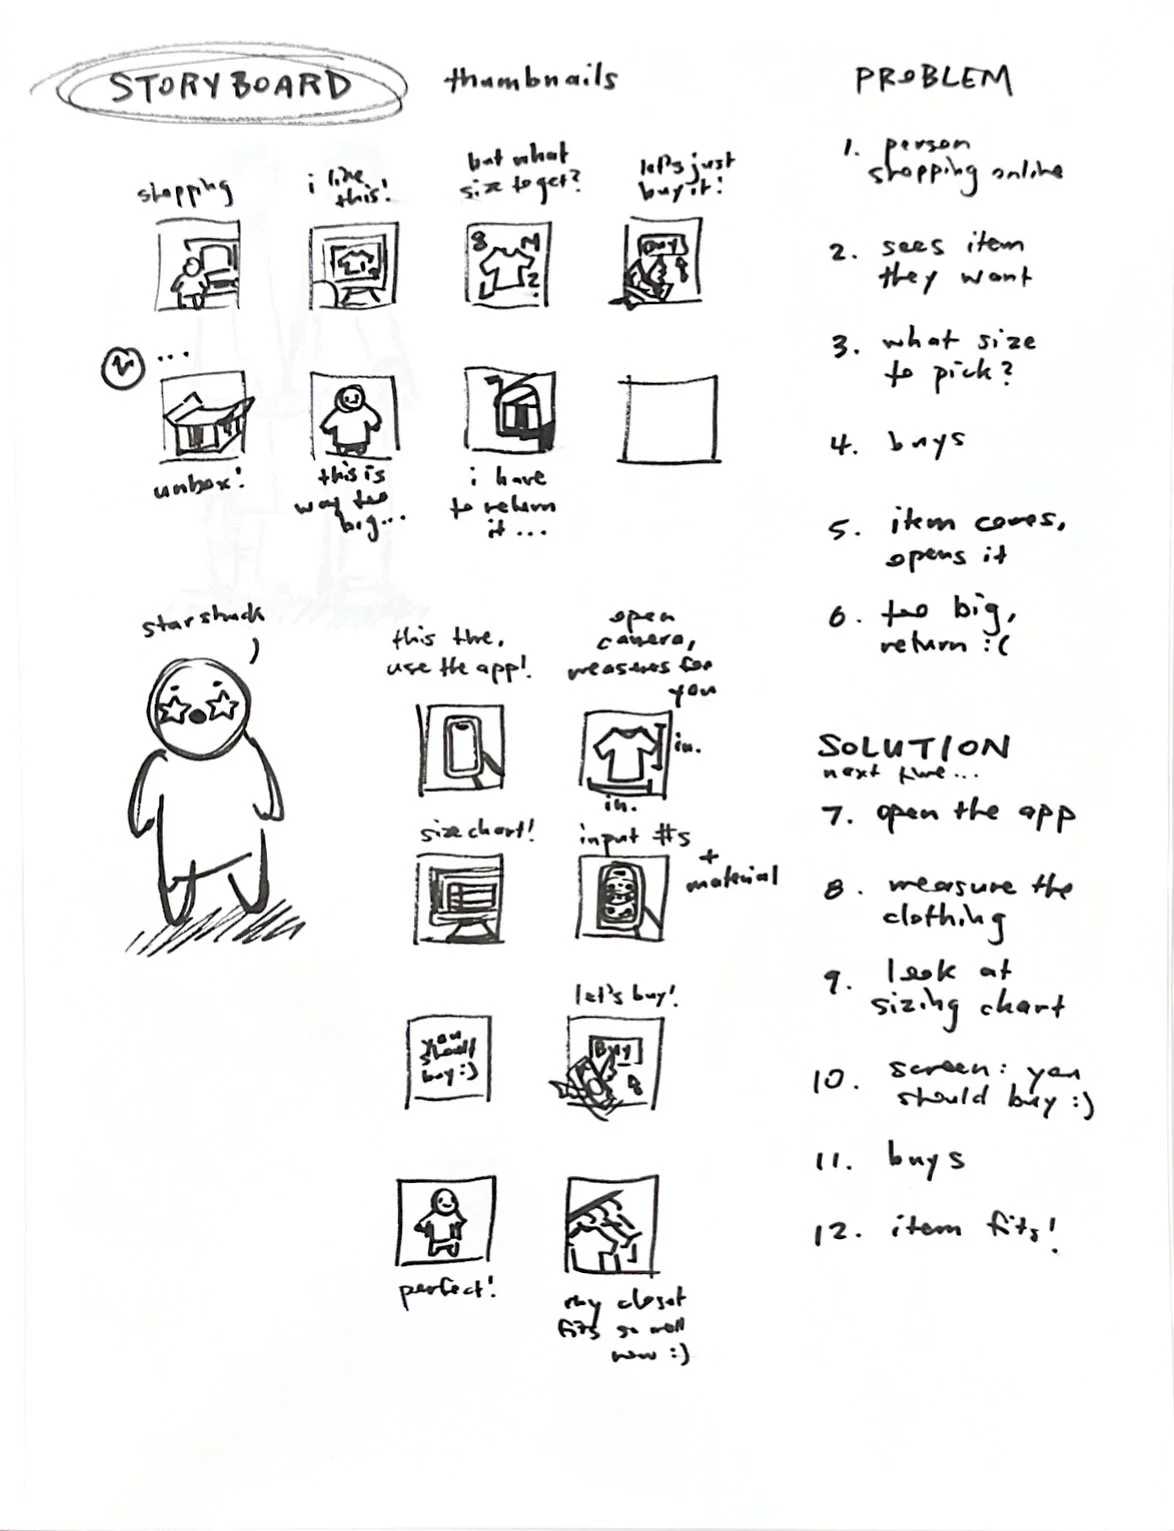 STORYBOARD
thumbnails
shopping
i like
this!
but what
size to get?
let's just
buy it!
S M
L ?
BUY
...
unbox!
this is
way too
big...
i have
to return
it ...
starstruck
this time,
use the app!
open
camera,
measures for
you
in.
in.
size chart!
input #s
+
material
let's buy!
you
should
buy :)
BUY
perfect!
my closet
fits so well
now :)
PROBLEM
1. person
shopping online
2. sees item
they want
3. what size
to pick?
4. buys
5. item comes,
opens it
6. too big,
return :(
SOLUTION
next time...
7. open the app
8. measure the
clothing
9. look at
sizing chart
10. screen: you
should buy :)
11. buys
12. item fits!